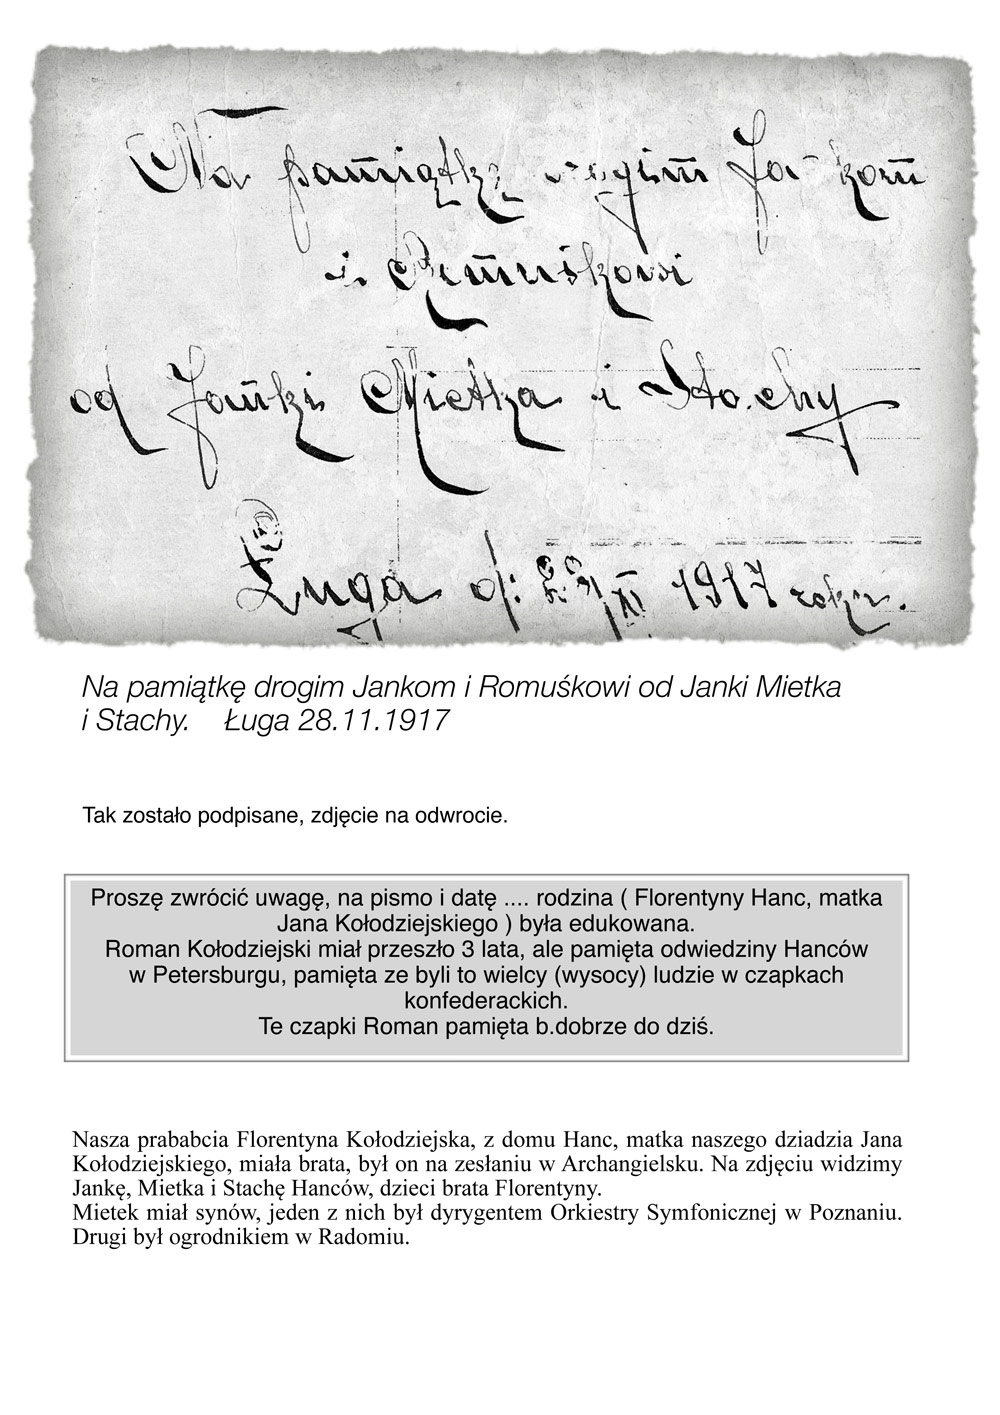 Na pamiątkę drogim Jankom
i Romuśkowi
od Janki Mietka i Stachy
Ługa d: 28/XI 1917 roku.
Na pamiątkę drogim Jankom i Romuśkowi od Janki Mietka
i Stachy. Ługa 28.11.1917
Tak zostało podpisane, zdjęcie na odwrocie.
Proszę zwrócić uwagę, na pismo i datę .... rodzina ( Florentyny Hanc, matka
Jana Kołodziejskiego ) była edukowana.
Roman Kołodziejski miał przeszło 3 lata, ale pamięta odwiedziny Hanców
w Petersburgu, pamięta ze byli to wielcy (wysocy) ludzie w czapkach
konfederackich.
Te czapki Roman pamięta b.dobrze do dziś.
Nasza prababcia Florentyna Kołodziejska, z domu Hanc, matka naszego dziadzia Jana
Kołodziejskiego, miała brata, był on na zesłaniu w Archangielsku. Na zdjęciu widzimy
Jankę, Mietka i Stachę Hanców, dzieci brata Florentyny.
Mietek miał synów, jeden z nich był dyrygentem Orkiestry Symfonicznej w Poznaniu.
Drugi był ogrodnikiem w Radomiu.